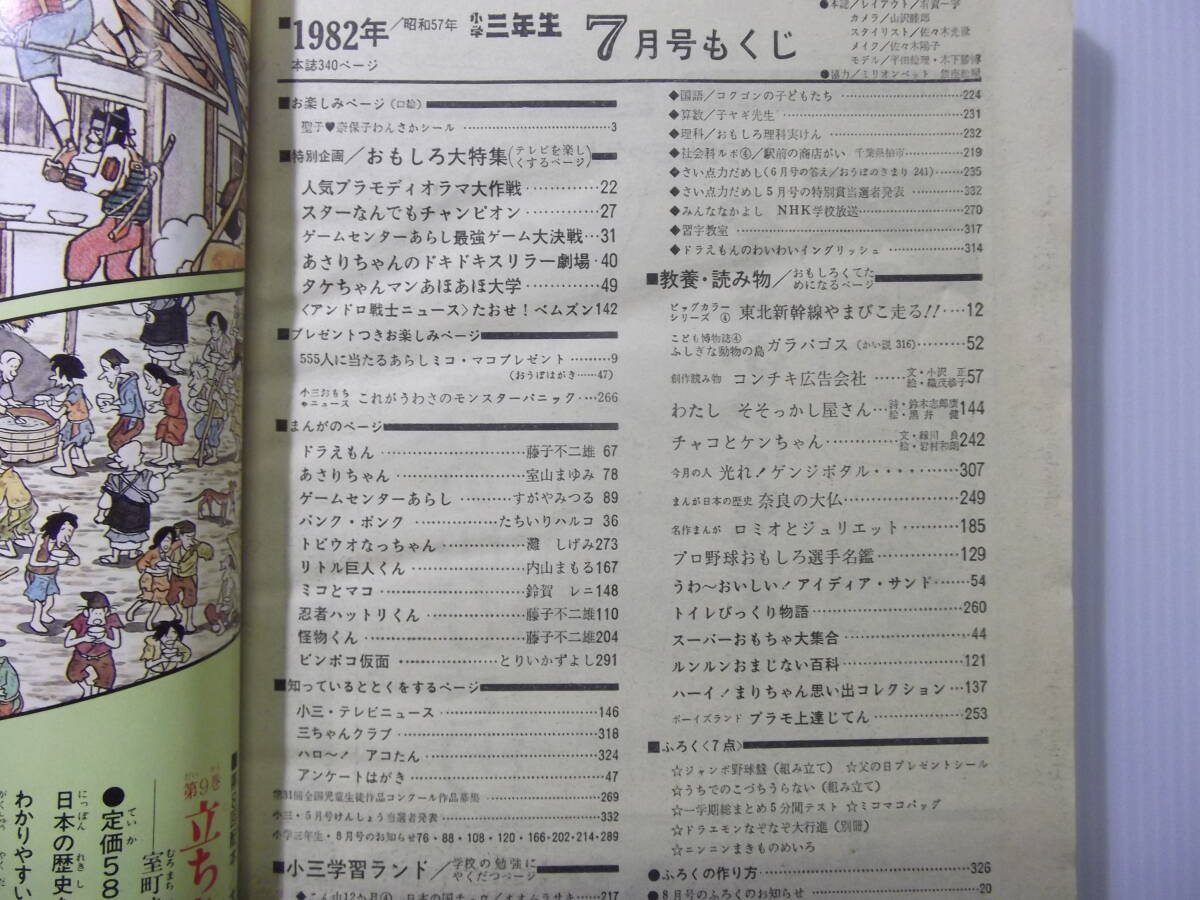 1982年/昭和57年 小学三年生 7月号もくじ
本誌340ページ
■お楽しみページ(口絵)
聖子♥奈保子わんさかシール……3
■特別企画/おもしろ大特集(テレビを楽しくするページ)
人気プラモディオラマ大作戦……22
スターなんでもチャンピオン……27
ゲームセンターあらし最強ゲーム大決戦…31
あさりちゃんのドキドキスリラー劇場・40
タケちゃんマンあほあほ大学……49
〈アンドロ戦士ニュース〉たおせ!ベムズン142
■プレゼントつきお楽しみページ
555人に当たるあらしミコ・マコプレゼント……9
(おうぼはがき……47)
小三おもちゃニュース これがうわさのモンスターパニック…266
■まんがのページ
ドラえもん……藤子不二雄 67
あさりちゃん……室山まゆみ 78
ゲームセンターあらし……すがやみつる 89
パンク・ポンク……たちいりハルコ 36
トビウオなっちゃん……灘 しげみ273
リトル巨人くん……内山まもる167
ミコとマコ……鈴賀 レニ148
忍者ハットリくん……藤子不二雄110
怪物くん……藤子不二雄204
ビンボコ仮面……とりいかずよし291
■知っているととくをするページ
小三・テレビニュース……146
三ちゃんクラブ……318
ハロ〜! アコたん……324
アンケートはがき……47
第31回全国児童生徒作品コンクール作品募集……269
小三・5月号けんしょう当選者発表……332
小学三年生・8月号のお知らせ76・88・108・120・166・202・214・289
■小三学習ランド/学校の勉強にやくだつページ
217
●本誌/レイアウト/有賀一字
カメラ/山沢勝郎
スタイリスト/佐々木光徹
メイク/佐々木陽子
モデル/平田絵理・木下
●協力/ミリオンペット
◆国語/コクゴンの子どもたち……224
◆算数/子ヤギ先生……231
◆理科/おもしろ理科実けん……232
◆社会科ルポ④/駅前の商店がい 千葉県柏市……219
◆さい点力だめし(6月号の答え/おうぼのきまり 241)……235
◆さい点力だめし5月号の特別賞当選者発表……332
◆みんななかよし NHK学校放送……270
◆習字教室……317
◆ドラえもんのわいわいイングリッシュ……314
■教養・読み物/おもしろくてためになるページ
ビッグカラーシリーズ④ 東北新幹線やまびこ走る!!…12
こども博物誌④ ふしぎな動物の島 ガラパゴス(かい説 316)……52
創作読み物 コンチキ広告会社……文・小沢 正 絵・織茂恭子57
わたし そそっかし屋さん…詩・鈴木志郎康 絵・黒井 健144
チャコとケンちゃん……文・緑川 良 絵・岩村和朗242
今月の人 光れ!ゲンジボタル……307
まんが日本の歴史 奈良の大仏……249
名作まんが ロミオとジュリエット……185
プロ野球おもしろ選手名鑑……129
うわ〜おいしい!アイディア・サンド……54
トイレびっくり物語……260
スーパーおもちゃ大集合……44
ルンルンおまじない百科……121
ハーイ!まりちゃん思い出コレクション…137
ボーイズランド プラモ上達じてん……253
■ふろく〈7点〉
☆ジャンボ野球盤(組み立て) ☆父の日プレゼントシール
☆うちでのこづちうらない(組み立て)
☆一学期総まとめ5分間テスト ☆ミコマコバッグ
☆ドラエモンなぞなぞ大行進(別冊)
☆ニンニンまきものめいろ
●ふろくの作り方……326
●8月号のふろくのお知らせ……20
第9巻
立ち
室町
●定価58
日本の歴史
わかりやすい